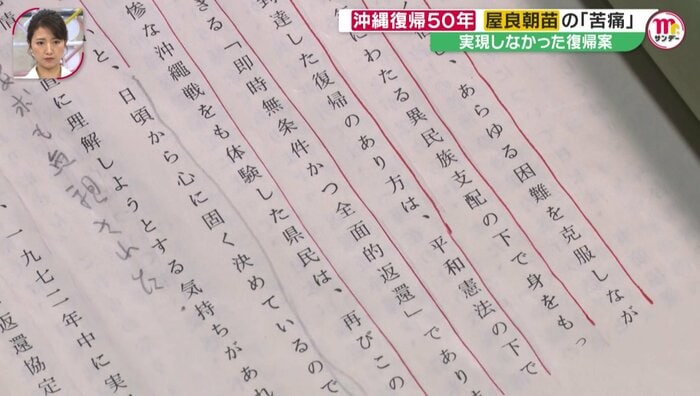 沖縄復帰50年 屋良朝苗の「苦痛」
実現しなかった復帰案
サンデー
し、あらゆる困難を克服しなが
にわたる異民族支配の下で身をもっ
達した復帰のあり方は、平和憲法の下で
きる「即時無条件かつ全面的返還」であり
惨な沖縄戦をも体験した県民は、再びこの
と、日頃から心に固く決めているので
直に理解しようとする気持ちがあれ
、一九七二年中に実
返還協定